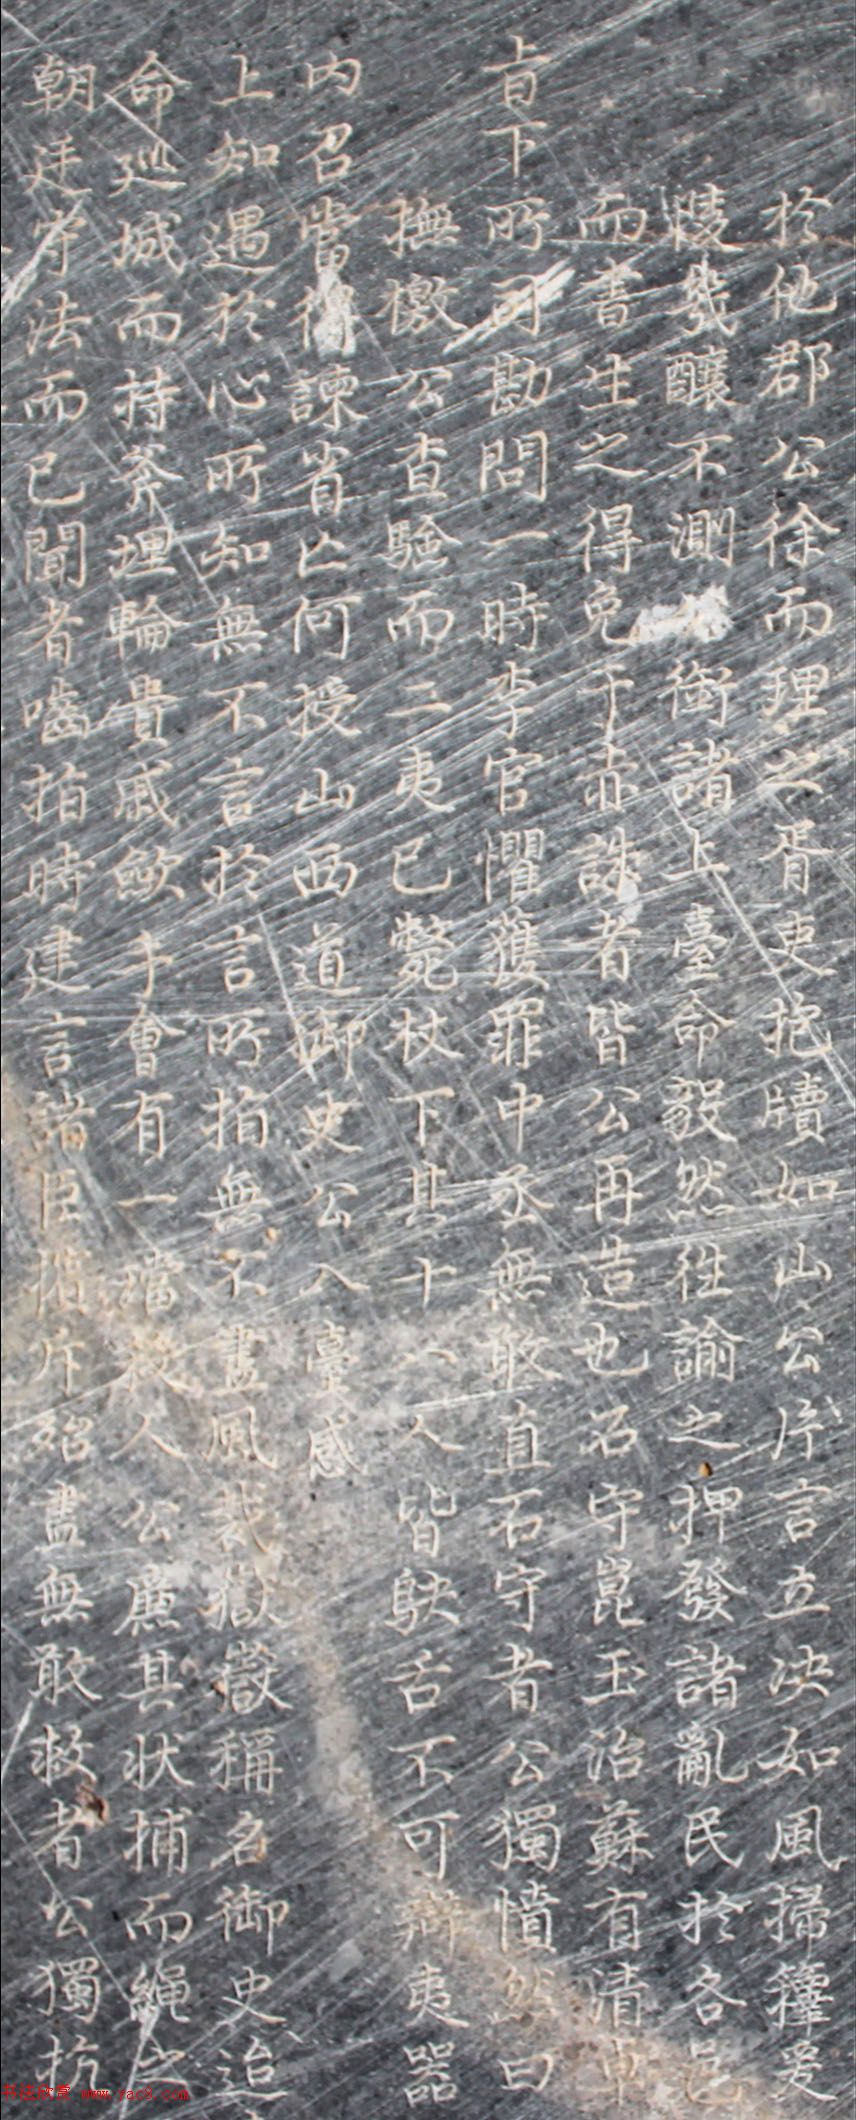 於他郡公徐而理之胥吏抱牘如山公片言立决如風掃籜爰
幾釀不測銜諸上臺命毅然往諭之押發諸亂民於各邑
而書生之得免于赤誅者皆公再造也石守崑玉治蘇有清
旨下所司勘問一時李官懼獲罪中丞無敢直石守者公獨憤然曰
撫檄公查驗而二夷已斃杖下其十八人皆鴃舌不可辯夷器
内召當得諫省亡何授山西道御史公入臺感
上知遇於心所知無不言於言所指無不盡風裁嶽嶽稱名御史迨
命巡城而持斧埋輪貴戚歛手會有一璫殺人公廉其状捕而繩之
朝廷守法而已聞者嚙指時建言諸臣擯斥殆盡無敢救者公獨抗
书法欣赏 www.yac8.com